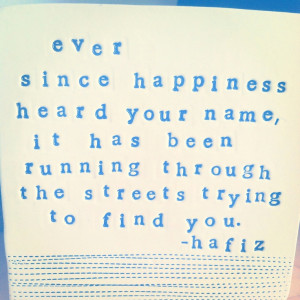 ever
since happiness
heard your name,
it has been
running through
the streets trying
to find you.
-hafiz